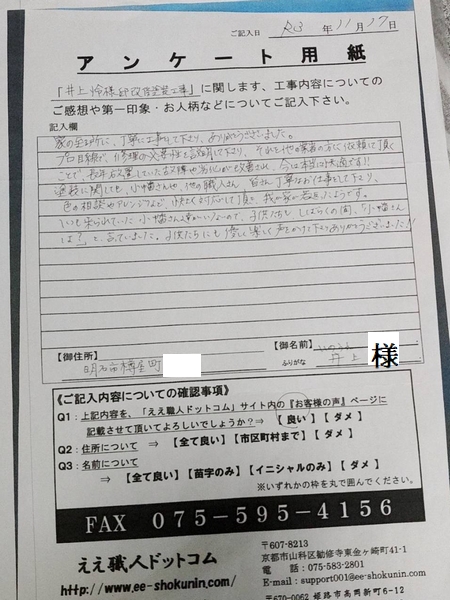 ご記入日 R3 年 11 月 17 日
アンケート用紙
「井上 様邸改修塗装工事」に関します、工事内容についての
ご感想や第一印象・お人柄などについてご記入下さい。
記入欄
家の全体的に、丁寧に工事をして下さり、ありがとうございました。
プロ目線で、修理の必要性を説明して下さり、それを他の業者の方に依頼して頂く
ことで、長年放置していた故障や劣化が改善され、今は本当に快適です!!
塗装に関しても、小幡さんや、他の職人さん 皆さん丁寧なお仕事をして下さり、
色の相談やアレンジなど、快よく対応して頂き、我が家が若返ったようです。
いつも来られていた小幡さんが来ないなので、子供たちも しばらくの間、「小幡さん
は?」と、言っていました。子供たちにも優しく楽しく声をかけて下さりありがとうございました!!
【御住所】
明石市樽屋町
【御名前】
ふりがな
いのうえ
井上 様
《ご記入内容についての確認事項》
Q1:上記内容を、「ええ職人ドットコム」サイト内の『お客様の声』ページに
記載させて頂いてよろしいでしょうか?⇒ 【 良い】 【 ダメ 】
Q2:住所について ⇒ 【全て良い】【市区町村まで】【 ダメ 】
Q3:名前について
⇒ 【全て良い】【苗字のみ】【イニシャルのみ】【 ダメ 】
※いずれかの枠を丸で囲んでください。
FAX 075-595-4156
ええ職人ドットコム
http://www.ee-shokunin.com/
〒607-8213
京都市山科区勧修寺東金ヶ崎町41-1
電話 : 075-583-2801
E-mail : support001@ee-shokunin.com
〒670-0062 姫路市高岡新町6-12